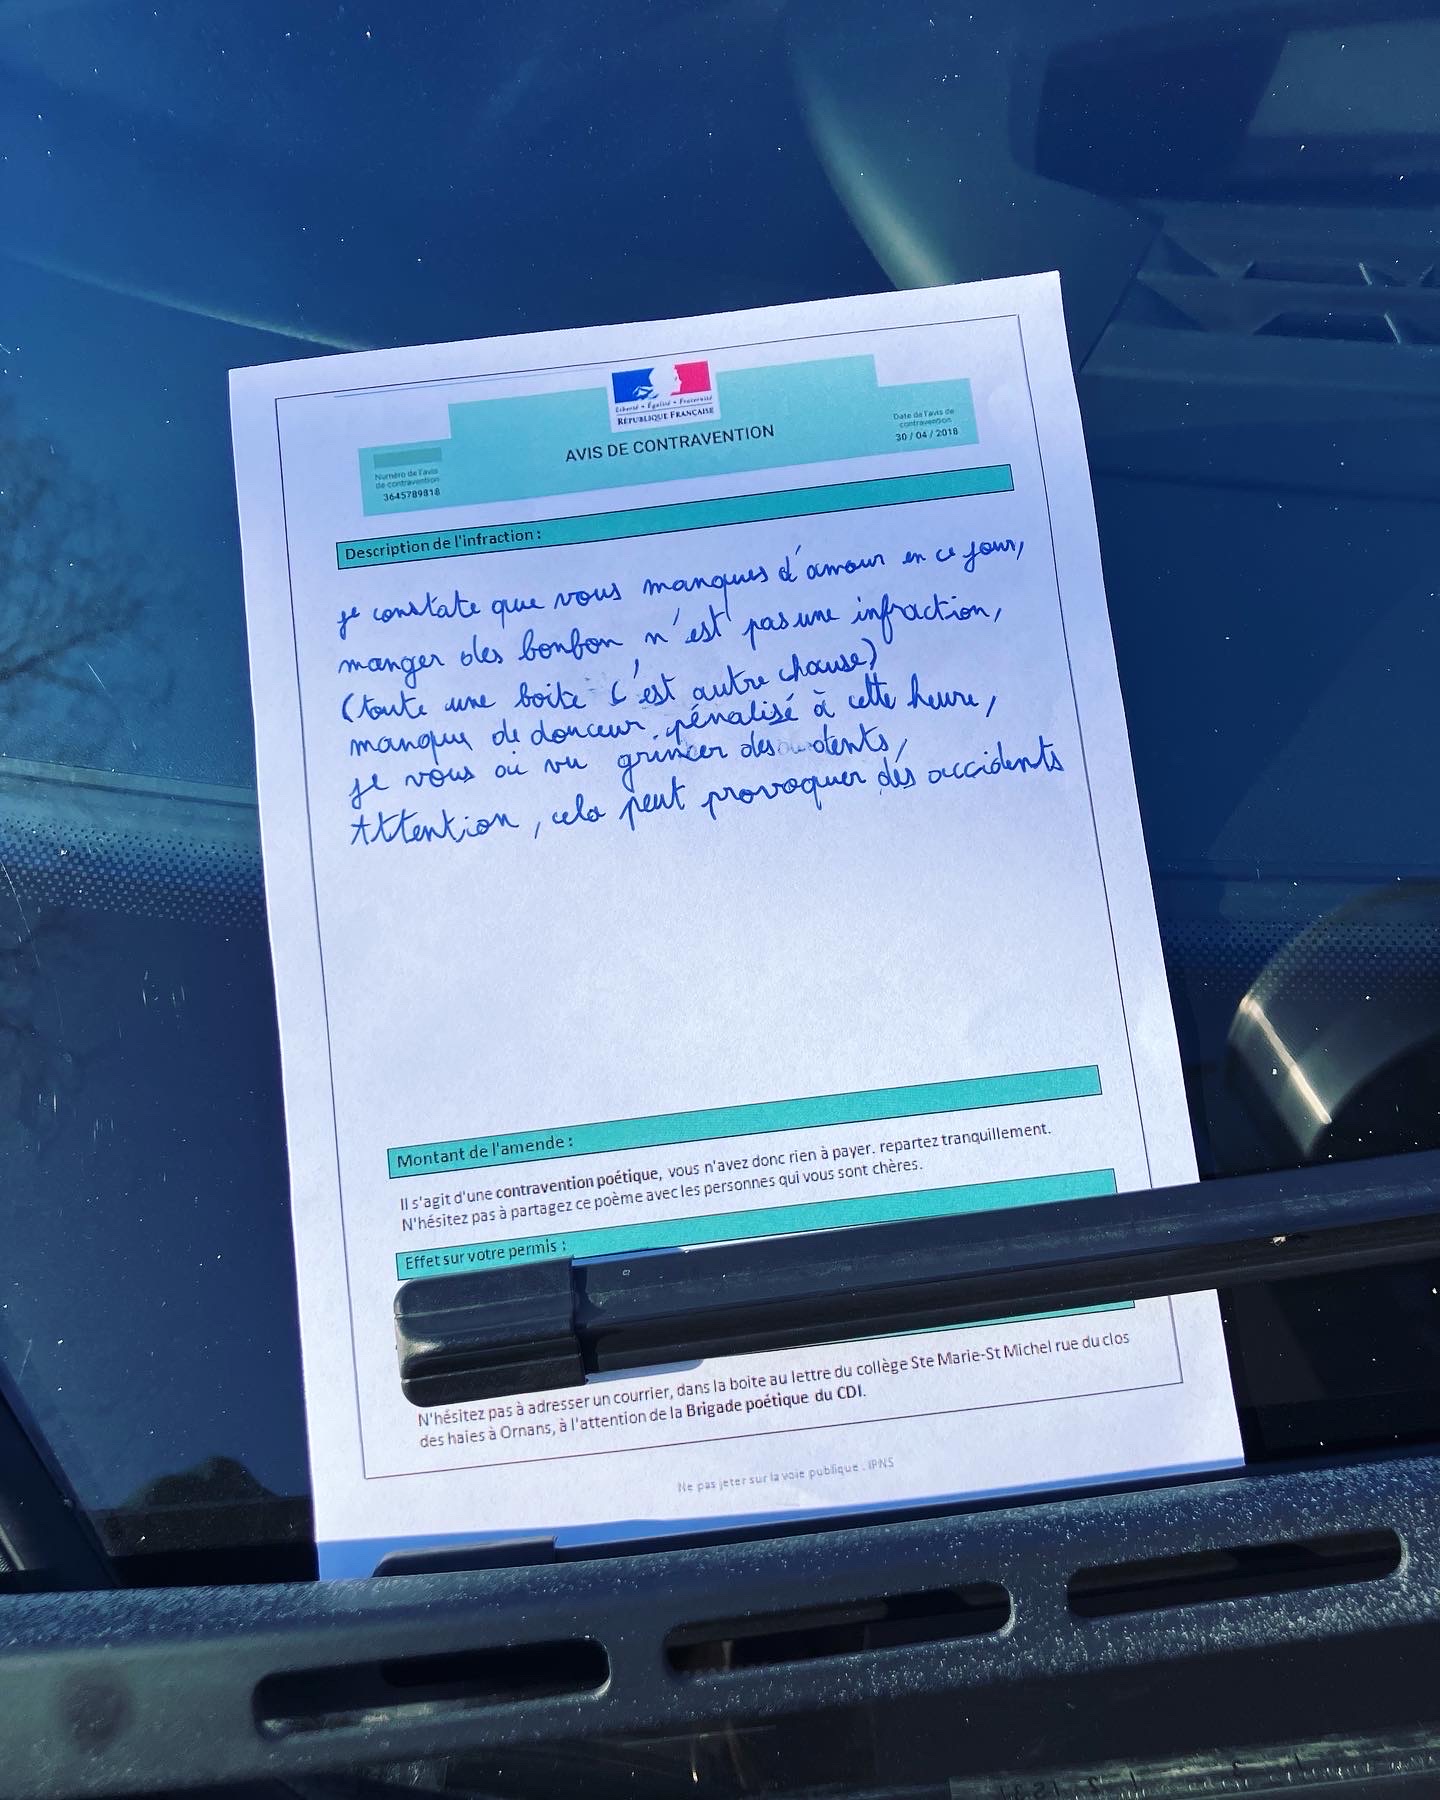 Liberté • Égalité • Fraternité
RÉPUBLIQUE FRANÇAISE
AVIS DE CONTRAVENTION
Numéro de l'avis
de contravention
3645789818
Date de l'avis de
contravention
30 / 04 / 2018
Description de l'infraction :
je constate que vous manques d'amour en ce jour,
manger des bonbon, n'est pas une infraction,
(toute une boite c'est autre chouse)
manque de douceur pénalisé à cette heure,
je vous ai vu grincer des dents,
Attention, cela peut provoquer dés accidents
Montant de l'amende :
Il s'agit d'une contravention poétique, vous n'avez donc rien à payer. repartez tranquillement.
N'hésitez pas à partagez ce poème avec les personnes qui vous sont chères.
Effet sur votre permis :
N'hésitez pas à adresser un courrier, dans la boite au lettre du collège Ste Marie-St Michel rue du clos
des haies à Ornans, à l'attention de la Brigade poétique du CDI.
Ne pas jeter sur la voie publique . IPNS